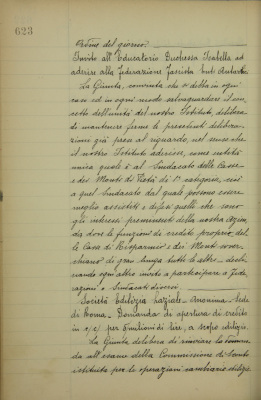 623
Ordine del giorno:
Invito all'Educatorio Duchessa Isabella ad
aderire alla Federazione Fascista Enti Autarchici.
La Giunta, convenuta che si debba in ogni
caso ed in ogni modo salvaguardare il con-
cetto dell'unità del nostro Istituto, delibera
di mantenere ferme le precedenti delibera-
zioni già prese al riguardo, nel senso che
il nostro Istituto aderisca, come metodo
unica quale è al Sindacato delle Casse
e dei Monti di Pietà di 1ª categoria, ossia
a quel Sindacato dal quale possono essere
meglio assistiti e difesi quelli che sono
gli interessi preminenti della nostra Azien-
da, dove le funzioni di credito proprio, del-
la Cassa di Risparmio e dei Monti sover-
chiano di gran lunga tutte le altre - decli-
nando ogni altro invito a partecipare a Fede-
razioni o Sindacati diversi.
Società Edilizia Laziale - Anonima - Sede
di Roma - Domanda di apertura di credito
in c/c per 8 milioni di lire, a scopo edilizio.
La Giunta delibera di rinviare la doman-
da all'esame della Commissione di Sconto
istituita per le operazioni cambiarie edilizie.